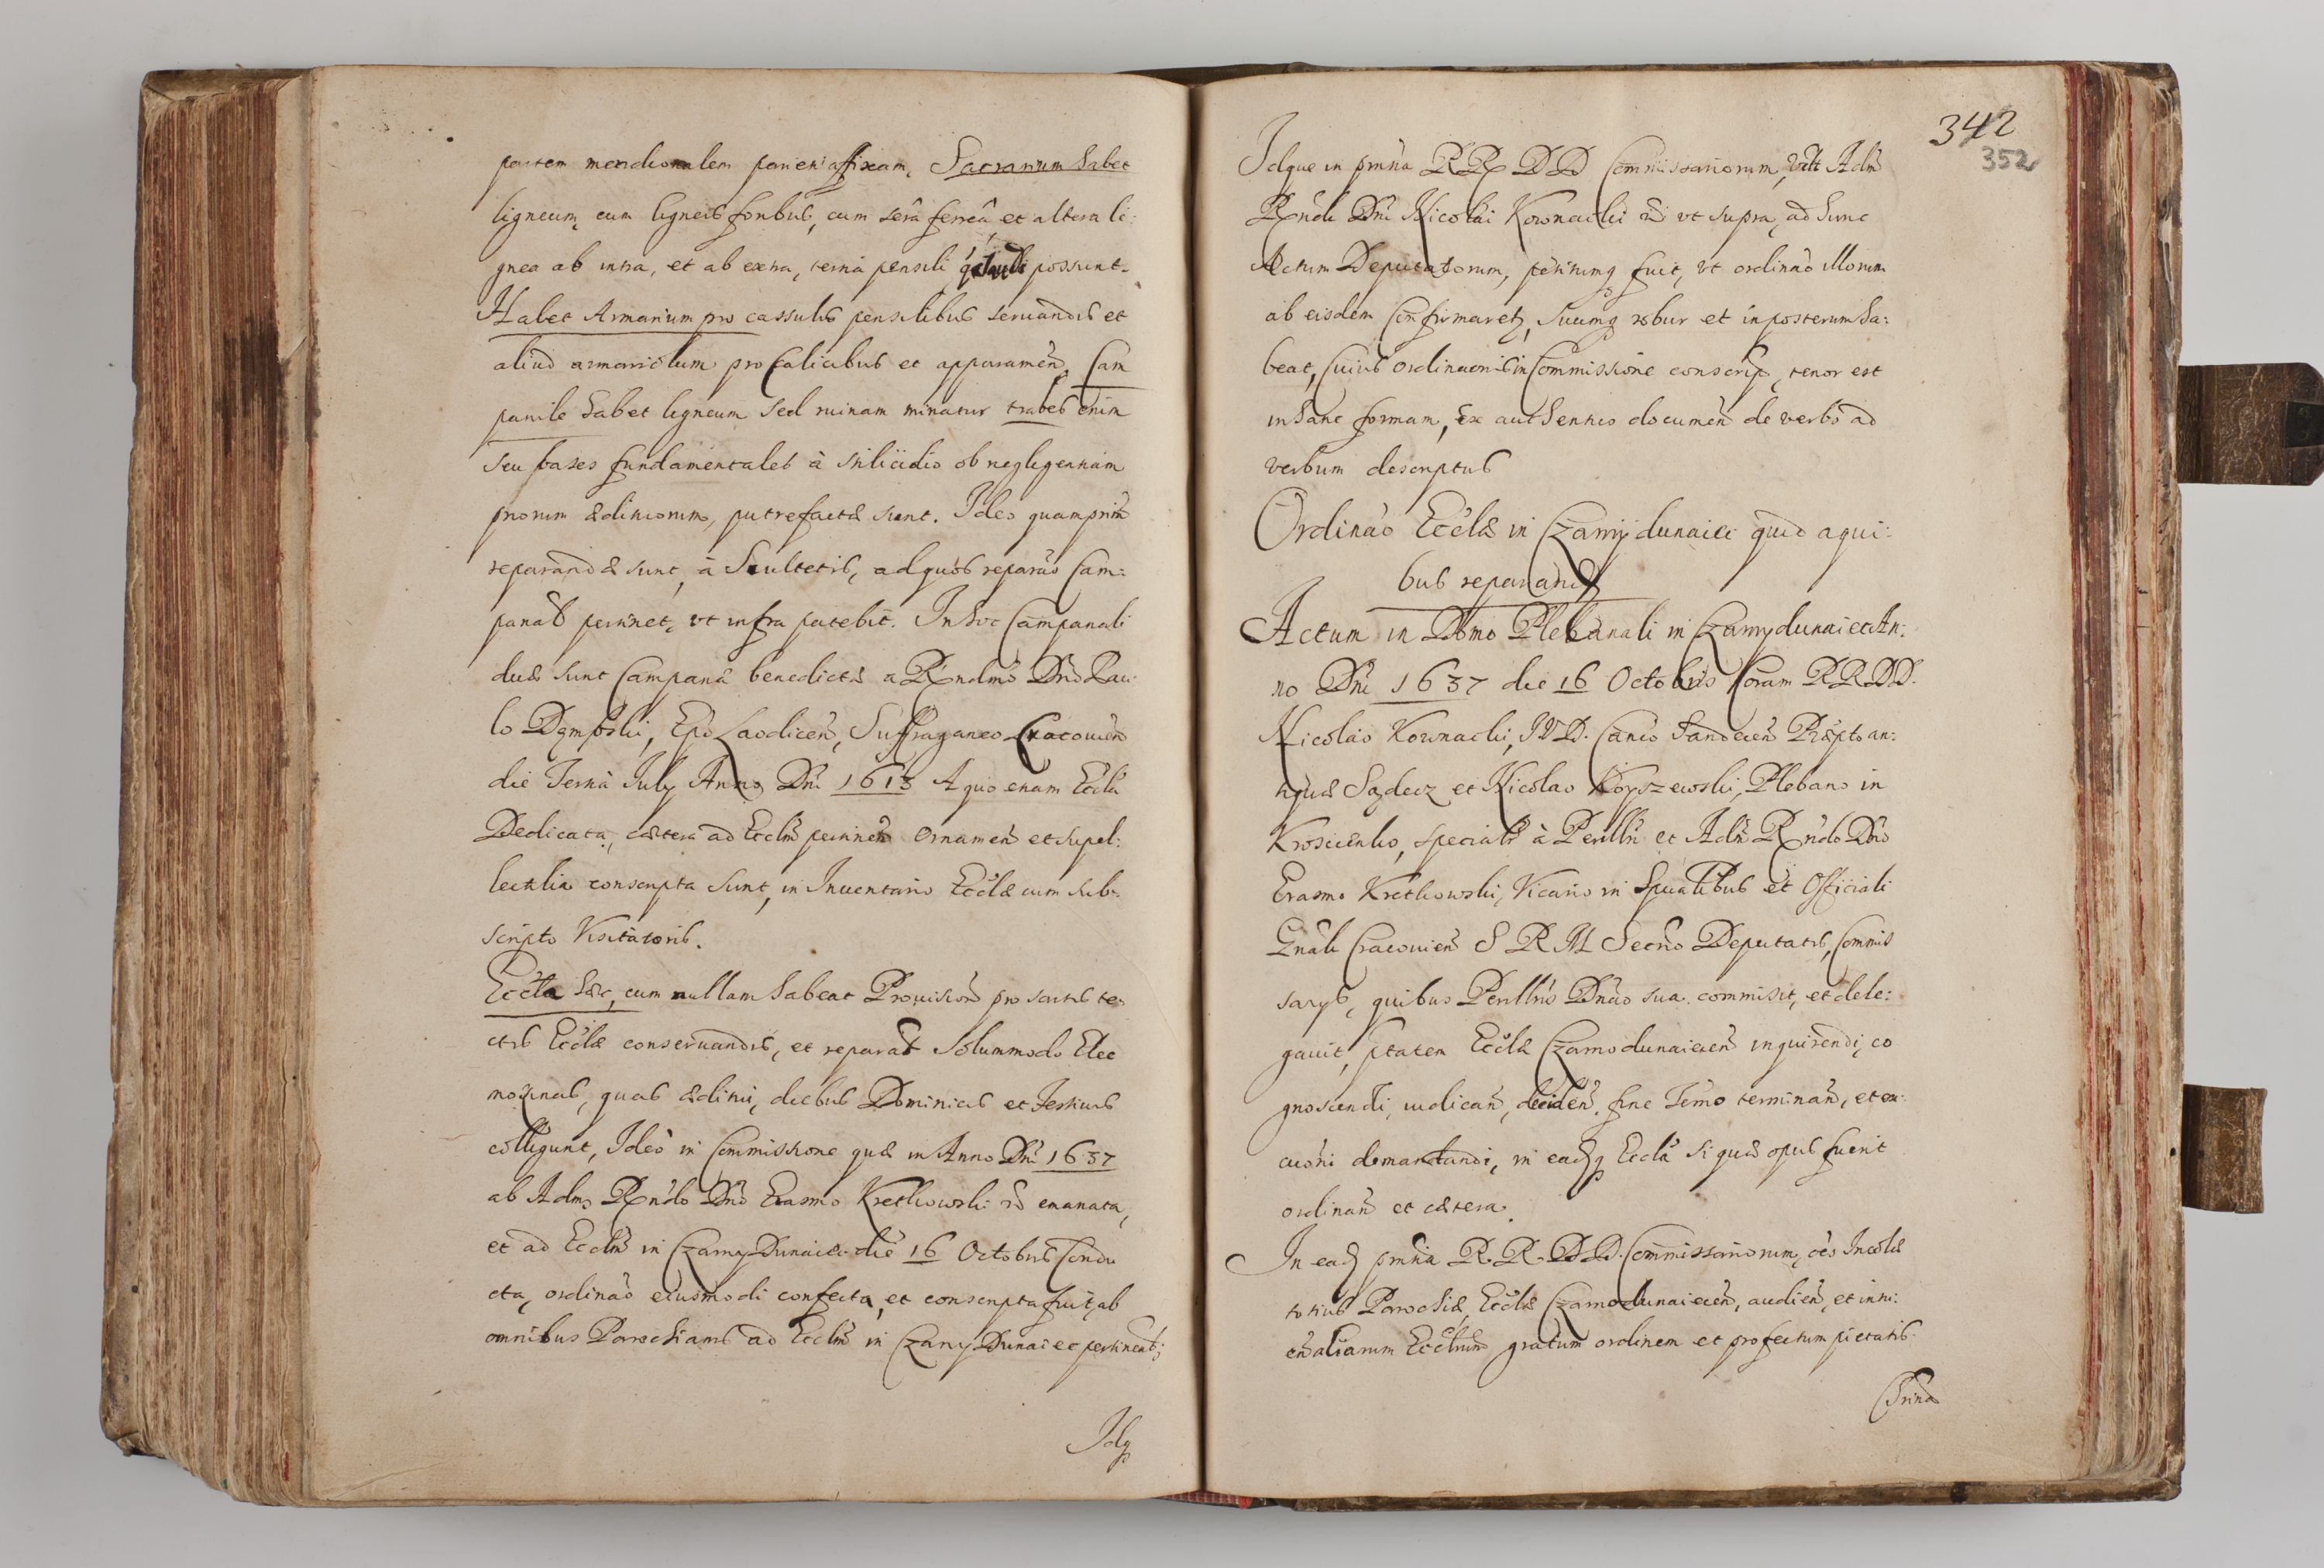 partem meridionalem parieti affixam, Sacrarium habet
ligneum, cum ligneis foribus, cum serâ ferreâ, et altera li:
gnea ab intra, et ab extra, serna pensili possunt.
Habet Armarium pro cassulis pensilibus seruandis et
aliud armariolum pro Calicibus et apparamen. Cam
panile habet ligneum sed ruinam minatur trabes enim
seu bases fundamentales à stilicidio ob negligentiam
priorum ædituorum, putrefactæ sunt. Ideo quamprim
reparandæ sunt, à Scultetis, ad quos reparâo Cam:
panał pertinet, vt infra patebit. In hoc Campanali
duæ sunt Campanæ benedictæ a Rndmo Dno Pau:
lo Dęmpski, Epo Laodicen, Suffraganeo Cracouien
die Terna July Anno Dni 1613 A quo etiam Eccla
Dedicata, cætera ad Ecclm pertinen ornamen et supel:
lectilia conscripta sunt, in Inuentario Ecclæ cum sub:
scripto Visitatoris.
Eccla hæc, cum nullam habeat Prouision pro sartis te:
ctis Ecclæ conseruandis, et reparań solummodo Elee
mosinas, quas æditui, diebus Dominicis et Festiuis
colligunt, Ideo in Commissione quæ in Anno Dni 1637
ab Adm Rndo Dno Erasmo Kretkowski emanata,
et ad Ecclm in Czarny Dunaiec die 16 Octobris Condu
cta, ordinâo eiusmodi confecta, et conscripta fuit, ab
omnibus Parochianis ad Ecclm in Czarny Dunaiec pertinent;
Idq
342
352
Idque in pntia RR DD Commissariorum, Adm
Rndi Dni Nicolai Kownacki vt supra, ad hunc
Actum Deputatorum, petitumq fuit, vt ordinâo illorum
ab eisdem Confirmaret, suumq robur et in posterum ha:
beat, Cuius ordinaonis in Commissione conscrip, tenor est
in hanc formam, ex authentico documen de verbo ad
verbum descriptus
Ordinâo Ecclæ in Czarnydunaiec quid a qui:
bus reparand
Actum in Domo Plebanali in Czarnydunaiec An:
no Dni 1637 die 16 Octobris Coram RRDD.
Nicolao Kownacki, IVD. Canco Sandecen Præpto an:
tiquæ Sądecz et Nicolao Koyszewski, Plebano in
Kroscienko, specialr à Perillri et Adm Rndo Dno
Erasmo Kretkowski, Vicario in Spualibus et Officiali
Gnali Cracouien S R M Secrio Deputatis, Commis
sarys, quibus Perillris Dnao sua commisit, et dele:
gauit, ptatem Ecclæ Czarnodunaiecen inquirendi, co
gnoscendi, iudican, deciden, fine Termo terminan, et ex:
cuoni demandandi, in eadq Eccla si quæ opus fuerit
ordinan et cætera.
In ead pntia R. R. DD. Commissariorum, oes Incolæ
totius Parochiæ, Ecclæ Czarnodunaiecen, audien, et intu:
en aliarum Ecclrum gratum ordinem et profectum pietatis